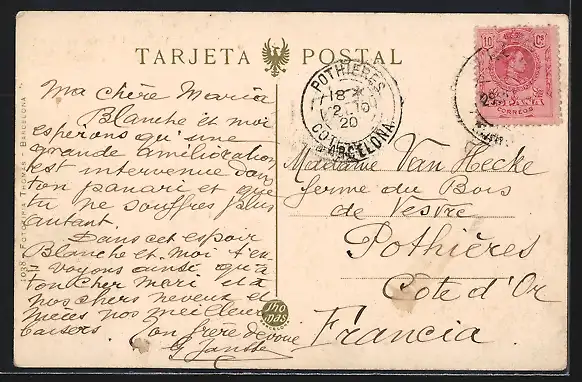 TARJETA POSTAL
Ma chère Maria
Blanche et moi
esperons qu'une
grande amélioration
est intervenue dans
ton panari et que
tu ne souffres plus
autant.
Dans cet espoir
Blanche et moi t'en
voyons ainsi qu'à
ton cher mari et à
nos chers neveux et
nièces nos meilleurs
baisers. Ton frère dévoué
1038 - FOTOTIPIA THOMAS - BARCELONA
Thomas
BARCELONA
POTHIÈRES
18
2-10
20
COTE
BARCELONA
10 Cs
ESPAÑA
CORREOS
29
Madame Van Hecke
ferme du Bois
de Vesvre
Pothières
Côte d'Or
Francia